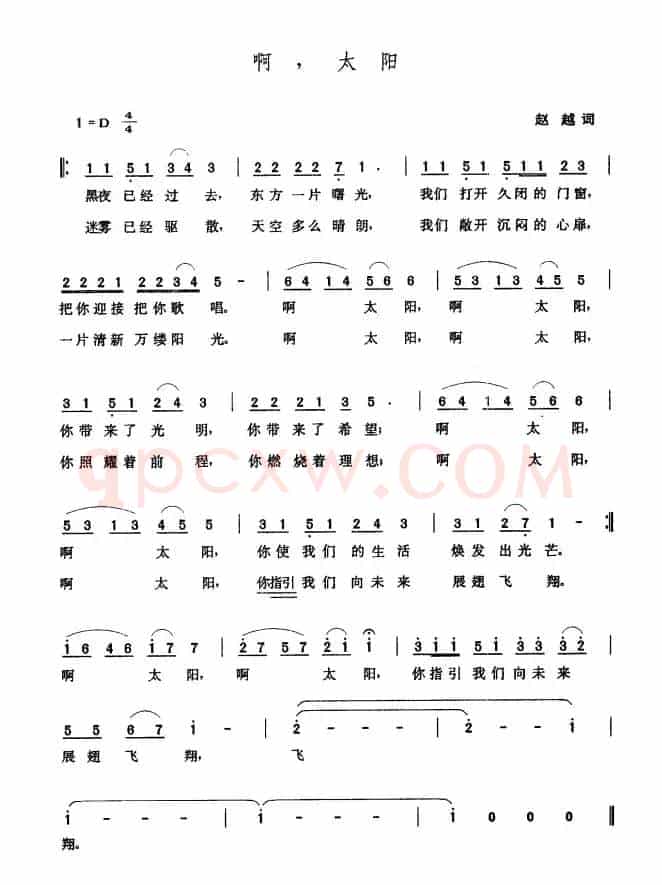 啊，太阳
1=D 4/4 赵越词
1 1 5 1 3 4 3 | 2 2 2 2 7 1 · | 1 1 5 1 5 1 1 2 3
黑夜已经过去，东方一片曙光，我们打开久闭的门窗，
迷雾已经驱散，天空多么晴朗，我们敞开沉闷的心扉，
2 2 2 1 2 2 3 4 5 - | 6 4 1 4 5 6 6 | 5 3 1 3 4 5 5
把你迎接把你歌唱。啊太阳，啊太阳，
一片清新万缕阳光。啊太阳，啊太阳，
3 1 5 1 2 4 3 | 2 2 2 1 3 5 · | 6 4 1 4 5 6 6
你带来了光明，你带来了希望；啊太阳，
你照耀着前程，你燃烧着理想；啊太阳，
qpcxw.COM
5 3 1 3 4 5 5 | 3 1 5 1 2 2 2 2 | 3 1 2 7 1 - :||
啊太阳，你使我们的生活焕发出光芒。
啊太阳，你指引我们向未来展翅飞翔。
1 6 4 6 1 7 7 | 2 7 5 7 2 1 1 | 3 1 1 5 1 3 3 3 2
啊太阳，啊太阳，你指引我们向未来
5 5 6 7 1 | 2 - - - | 2 - - -
展翅飞翔，飞
1 - - - | 1 - - - | 1 0 0 0 ||
翔。